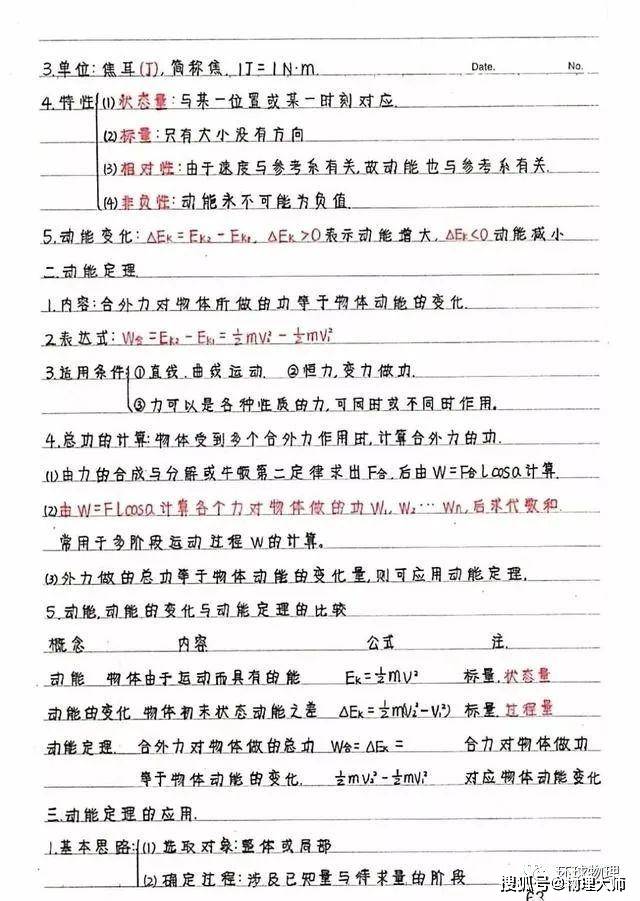 Date. No.
3.单位:焦耳(J),简称焦. 1J=1N·m.
4.特性 (1)状态量:与某一位置或某一时刻对应.
(2)标量:只有大小没有方向
(3)相对性:由于速度与参考系有关,故动能也与参考系有关.
(4)非负性:动能永不可能为负值.
5.动能变化:ΔEk=Ek₂-Ek₁, ΔEk>0表示动能增大,ΔEk<0动能减小
二.动能定理
1.内容:合外力对物体所做的功等于物体动能的变化.
2.表达式:W合=Ek₂-Ek₁=½mv₂²-½mv₁²
3.适用条件 ①直线.曲线运动. ②恒力,变力做功.
③力可以是各种性质的力,可同时或不同时作用。
4.总功的计算:物体受到多个合外力作用时,计算合外力的功.
(1)由力的合成与分解或牛顿第二定律求出F合,后由W=F合lcosα计算.
(2)由W=Flcosα计算各个力对物体做的功W₁,W₂…Wn,后求代数和.
常用于多阶段运动过程W的计算。
(3)外力做的总功等于物体动能的变化量,则可应用动能定理.
5.动能,动能的变化与动能定理的比较
概念 内容 公式 注.
动能 物体由于运动而具有的能 Ek=½mv² 标量.状态量
动能的变化 物体初末状态动能之差 ΔEk=½m(v₂²-v₁²) 标量.过程量
动能定理. 合外力对物体做的总功 W合=ΔEk= 合力对物体做功
等于物体动能的变化. ½mv₂²-½mv₁² 对应物体动能变化
三.动能定理的应用.
1.基本思路: (1)选取对象:整体或局部
(2)确定过程:涉及已知量与待求量的阶段
环球物理
搜狐号@物理大师
63